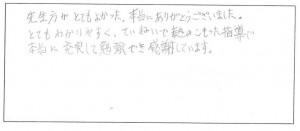 先生方がとてもよかった。本当にありがとうございました。
とてもわかりやすく、ていねいで熱のこもった指導で
本当に充実して勉強でき感謝しています。